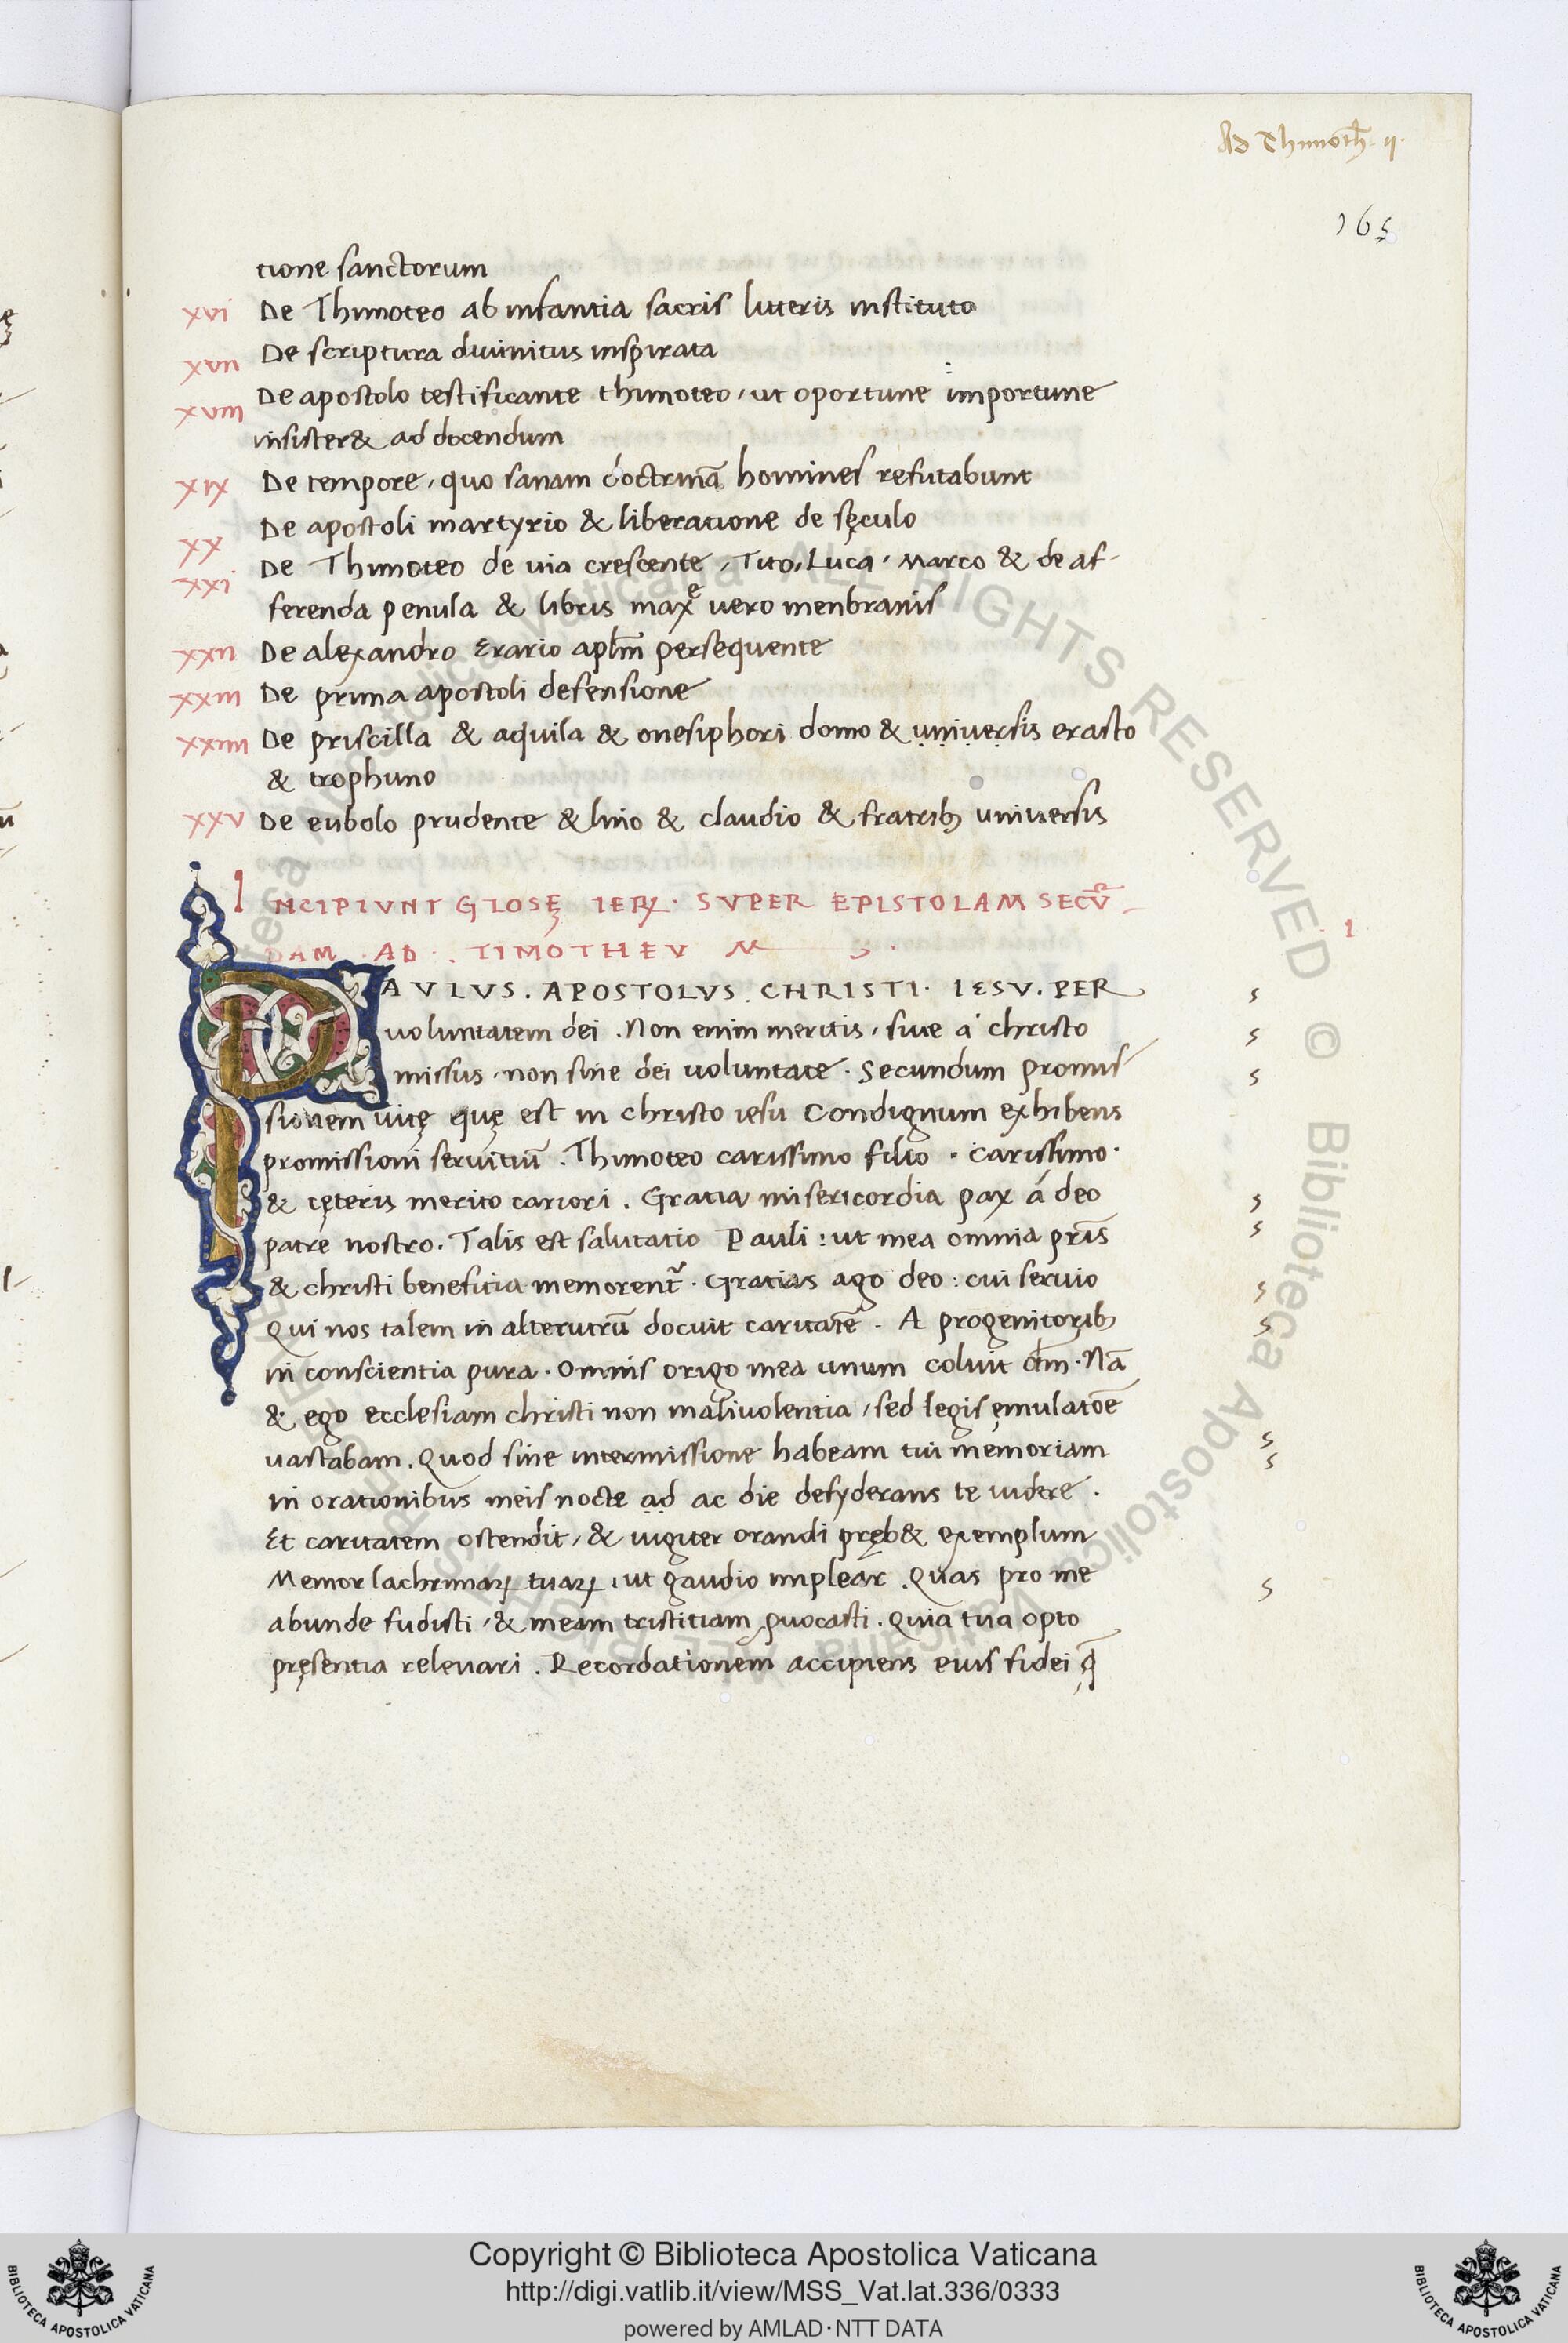 Ad Thimoth̄. ij.
165
tione sanctorum
xvi De Thimoteo ab infantia sacris litteris instituto
xvii De scriptura divinitus inspirata
xviii De apostolo testificante thimoteo, ut oportune importune
insister& ad docendum
xix De tempore, quo sanam doctrinā homines refutabunt
xx De apostoli martyrio & liberatione de sęculo
xxi De Thimoteo de via crescente, Tito, Luca, Marco & de af-
ferenda penula & libris maxe vero menbranis
xxii De alexandro Erario apl̄m persequente
xxiii De prima apostoli defensione
xxiiii De priscilla & aquila & onesiphori domo & universis erasto
& trophimo
xxv De eubolo prudente & lino & claudio & fratribꝫ universis
INCIPIVNT GLOSĘ IERꝶ. SVPER EPISTOLAM SECŪ-
DAM. AD. TIMOTHEV M
1
PAVLVS. APOSTOLVS. CHRISTI. IESV. PER
voluntatem dei. Non enim meritis, sive á christo
missus, non sine dei voluntate. Secundum promis
sionem vitę quę est in christo iesu Condignum exhibens
promissioni servitiū. Thimoteo carissimo filio. Carissimo.
& cęteris merito cariori. Gratia misericordia pax á deo
patre nostro. Talis est salutatio Pauli: ut mea omnia pr̄is
& christi beneficia memorent᷑. Gratias ago deo: cui servio
Qui nos talem in alterutrū docuit caritatē. A progenitoribꝫ
in conscientia pura. Omnis origo mea unum coluit dm̄. Nā
& ego ecclesiam christi non malivolentia, sed legis ęmulatōe
vastabam. Quod sine intermissione habeam tui memoriam
in orationibus meis nocte ad ac die desyderans te videre.
Et caritatem ostendit, & iugiter orandi pręb& exemplum
Memor lachrimaꝝ tuaꝝ, ut gaudio implear. Quas pro me
abunde fudisti, & meam tristitiam ꝓvocasti. Quia tua opto
pręsentia relevari. Recordationem accipiens eius fidei q̄
Copyright © Biblioteca Apostolica Vaticana
http://digi.vatlib.it/view/MSS_Vat.lat.336/0333
powered by AMLAD·NTT DATA
BIBLIOTECA APOSTOLICA VATICANA
BIBLIOTECA APOSTOLICA VATICANA